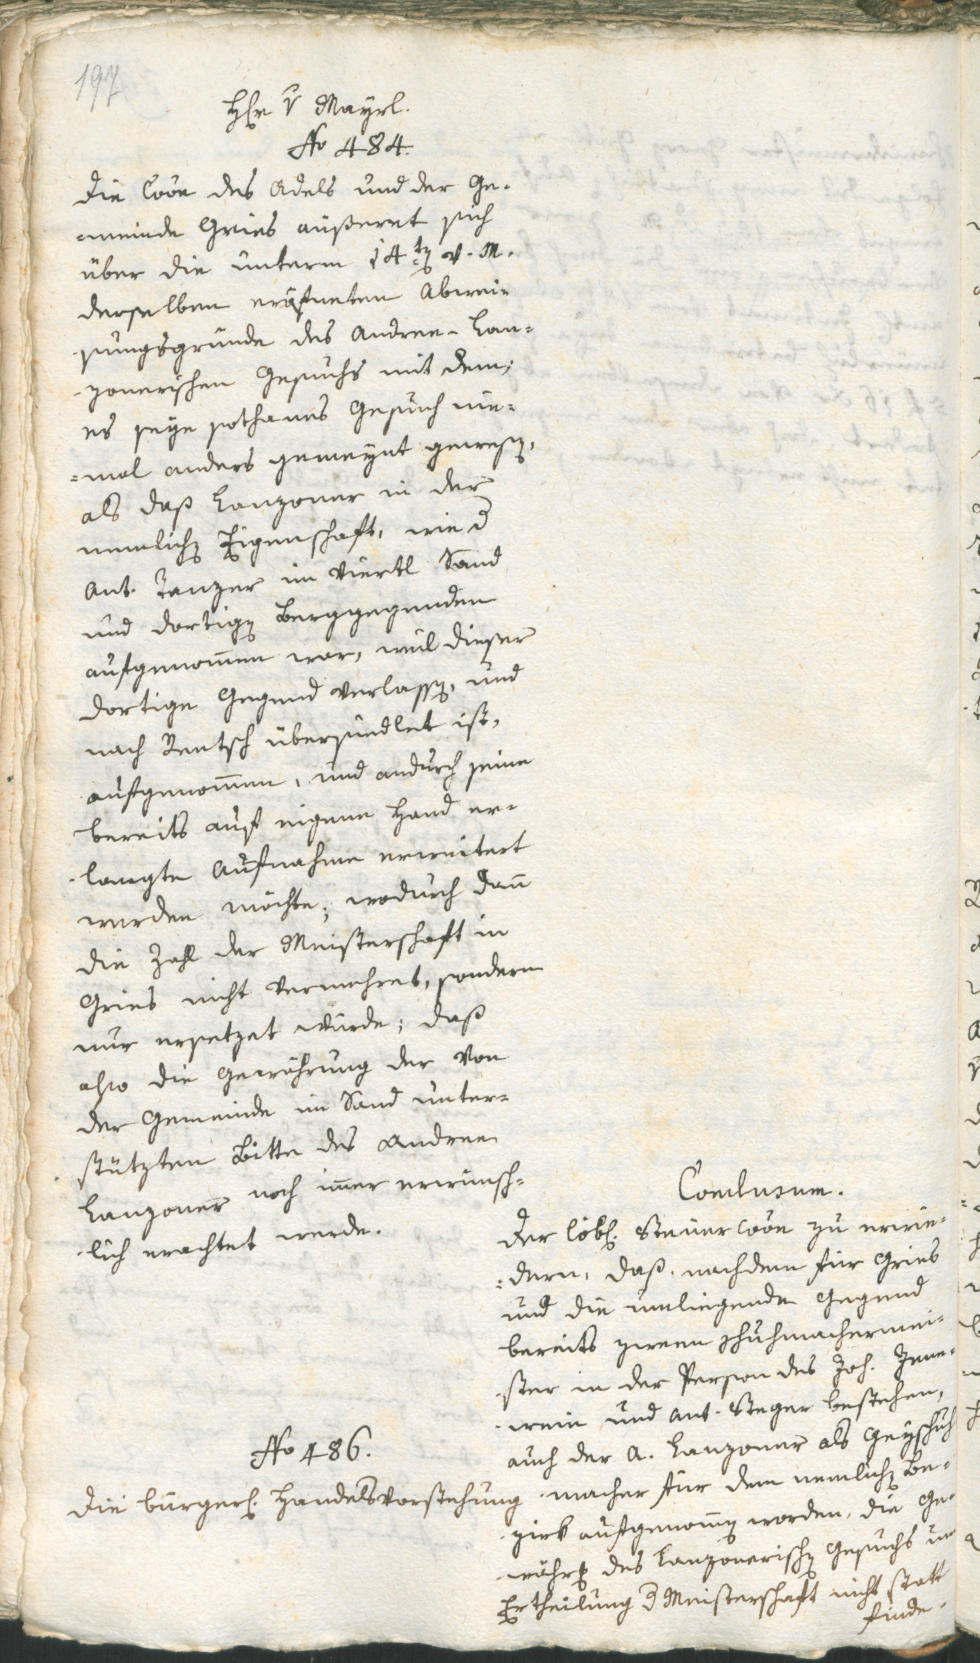 197
H[err] v Mayrl.
No 484.
Die Coõn des Adels und der Ge-
-meinde Gries äußeret sich
über die unterm 14ten v. M.
derselben eröfneten Abwei-
sungsgründe des Andree Lan-
zonerischen Gesuchs mit dem;
es seye sothanes Gesuch nie-
-mal anders gemeynt gewesen,
als daß Lanzoner in der
nemlichen Eigenschaft, wie d
Ant. Tanzer im Viertl Sand
und dortigen Berggegenden
aufgenom̄en war, weil dieser
dortige Gegend verlassen, und
nach Rentsch übersiedlet ist,
aufgenom̄en, und andurch seine
bereits auf eigene Hand er-
-langte Aufnahme erweitert
werden möchte; wodurch dan̄
die Zahl der Meisterschaft in
Gries nicht vermehret, sondern
nur ersetzet würde; daß
also die Gewährung der von
der Gemeinde im Sand unter-
stützten Bitte des Andree
Lanzoner noch im̄er erwünsch-
-lich erachtet werde.
Conclusum.
Der löbl. Steuer Coõn zu erwie-
-dern, daß, nachdem für Gries
und die umliegende Gegend
bereits zween Schuhmachermei-
-ster in der Person des Joh. Inne-
-rein und Ant. Steger bestehen,
auch der A. Lanzoner als Geyschuh
-macher für dem nemlichen Be-
-zirk aufgenom̄en worden, die Ge-
-währg des Lanzonerischen Gesuchs um
Ertheilung d Meisterschaft nicht statt
finde.
No 486.
Die bürgerl. Handelsvorstehung